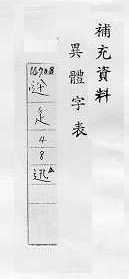 補充資料
異體字表
迯
辵
4
8
迯